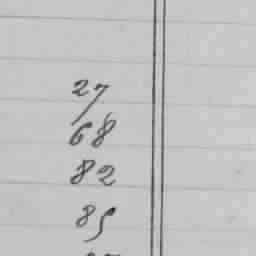 27
68
82
85